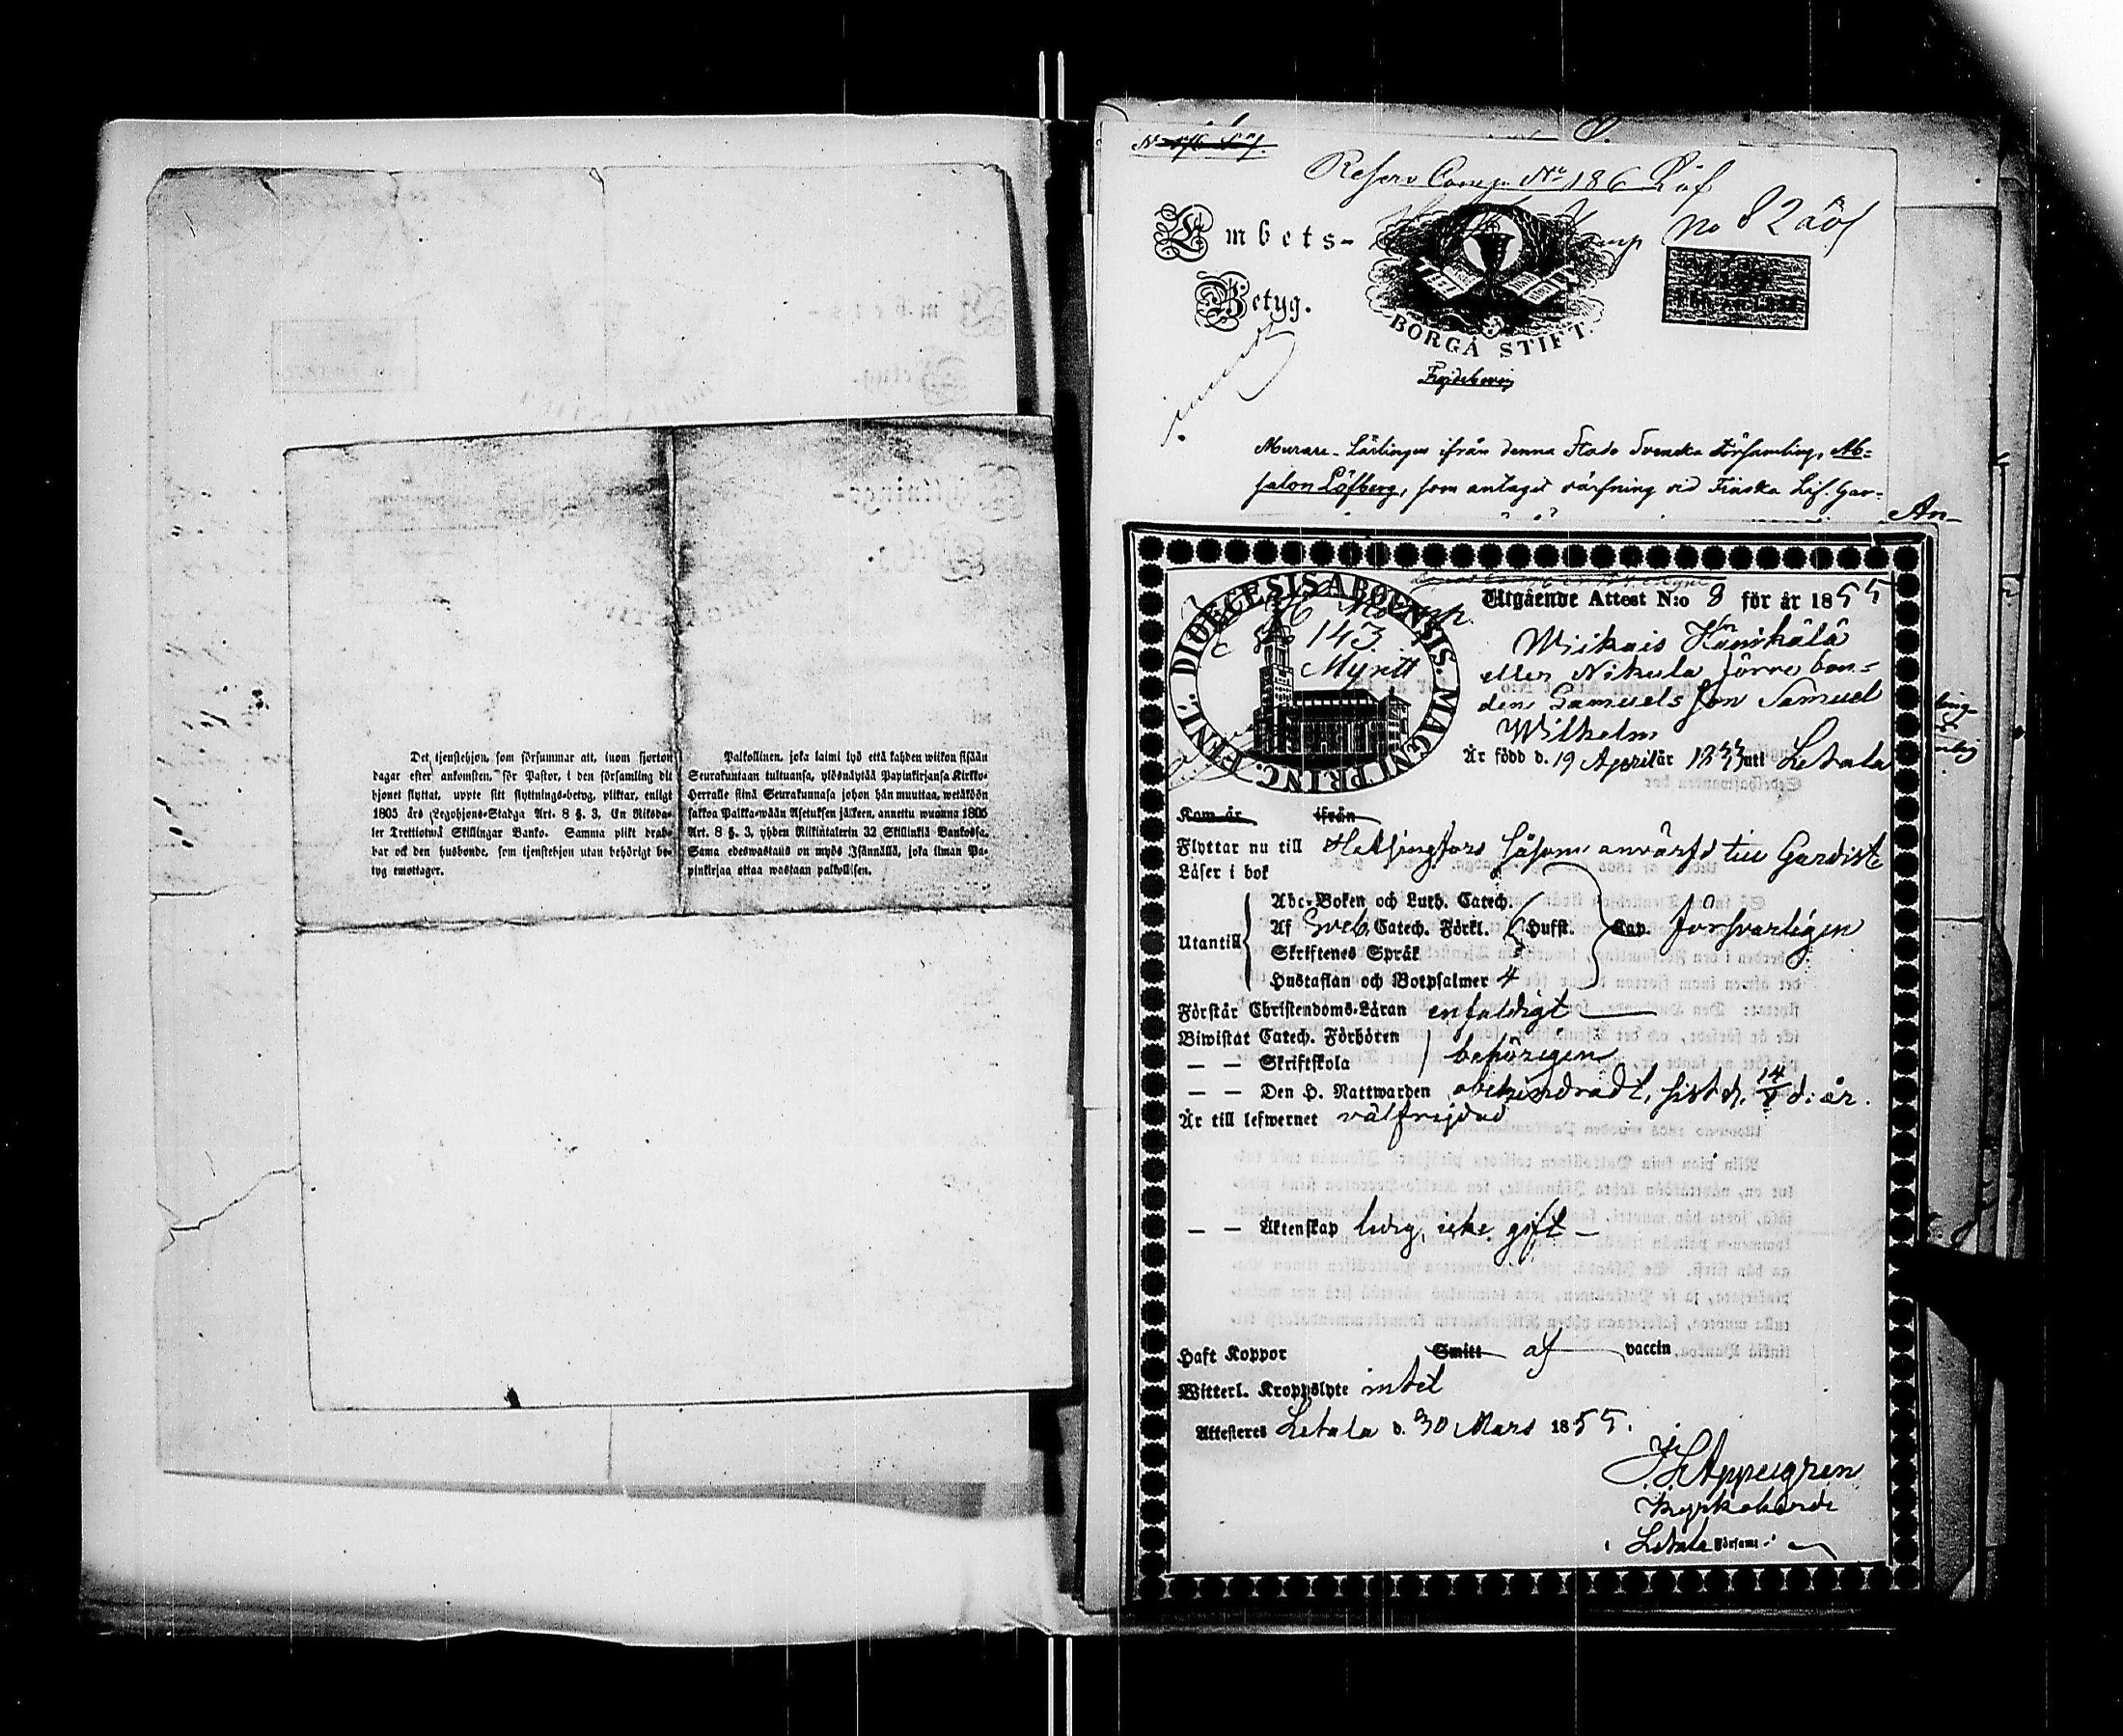 Det tjenstehjon, som försummar att, inom fjorton
dagar efter ankomsten, för Pastor, i den församling dit
hjonet flyttat, uppte sitt flyttnings-betyg, pliktar, enligt
1805 års Legohjons-Stadga Art. 8 §. 3, En Riksda-
ler Trettiotwå Skillingar Banko. Samma plikt drab-
bar ock den husbonde, som tjenstehjon utan behörigt be-
tyg emottager.
Palkollinen, joka laimi lyö että kahden wiikon sisään
Seurakuntaan tultuansa, ylösnäytää Papinkirjansa Kirkko-
Herralle siinä Seurakunnasa johon hän muuttaa, wetäköön
sakkoa Palkka-wään Asetuksen jälkeen, annettu wuonna 1805
Art. 8 §. 3, yhden Riikintalerin 32 Skillinkiä Bankossa.
Sama edeswastaus on myös Isännällä, joka ilman Pa-
pinkirjaa ottaa wastaan palkollisen.
Reserv Comp. No 186 Löf
Embets-
No 82
Betyg.
BORGÅ STIFT.
Frejdebevis
Murare-Lärlingen ifrån denna Stads Svenska Församling, Ab=
salon Löfberg, som antagit värfning vid Finska Lif. Gar=
An-
DIOECESIS ABOENSIS. MAGNI PRINC. FINL.
143
Myritt
Utgående Attest N:o 8 för år 1855
Samuels Son Samuel
Wilhelm
Är född d. 19 April år 1833 uti Letala
Kom år ifrån
Flyttar nu till Helsingfors såsom anvärfd till Gardist
Läser i bok
Utantill
Abc-Boken och Luth. Catech.
Af Sveb. Catech. Förkl. Hufst. Cap. försvarligen
Skriftenes Språk
Hustaflan och Botpsalmer 4
Förstår Christendoms-Läran enfaldigt
Biwistat Catech. Förhören
— — Skriftskola behörigen
— — Den H. Nattwarden obehindradt, sist d. 14 d: år.
Är till lefwernet välfrejdad
— — Äktenskap ledig, icke gift —
Haft Koppor Smitt af vaccin.
Witterl. Kroppslyte intet
Attesteres Letala d. 30 Mars 1855.
Appelgren
Kyrkoherde
i Letala Förfaml.